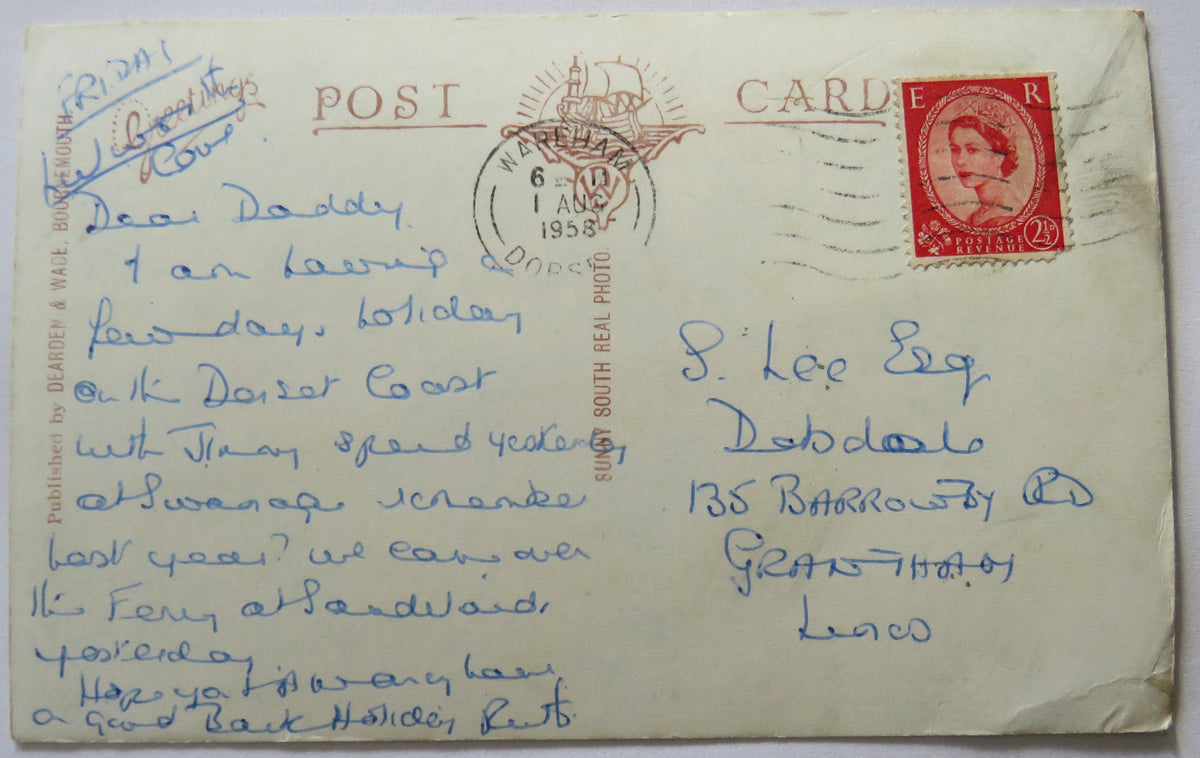 FRIDAY
Lulworth
Cove.
Greetings
POST CARD
Published by DEARDEN & WADE, BOURNEMOUTH.
SUNNY SOUTH REAL PHOTO.
WAREHAM
6
1 AUG
1958
DORSET
E R
POSTAGE
REVENUE
2½D
Dear Daddy.
I am having a
few days holiday
on the Dorset Coast
with Jimmy spend yesterday
at Swanage remember
last year? we came over
the Ferry at Sandbanks
yesterday
Hope you & have
a Good Bank Holiday Ruth.
S. Lee Esq
Dobdale
135 BARROWBY RD
GRANTHAM
Lincs